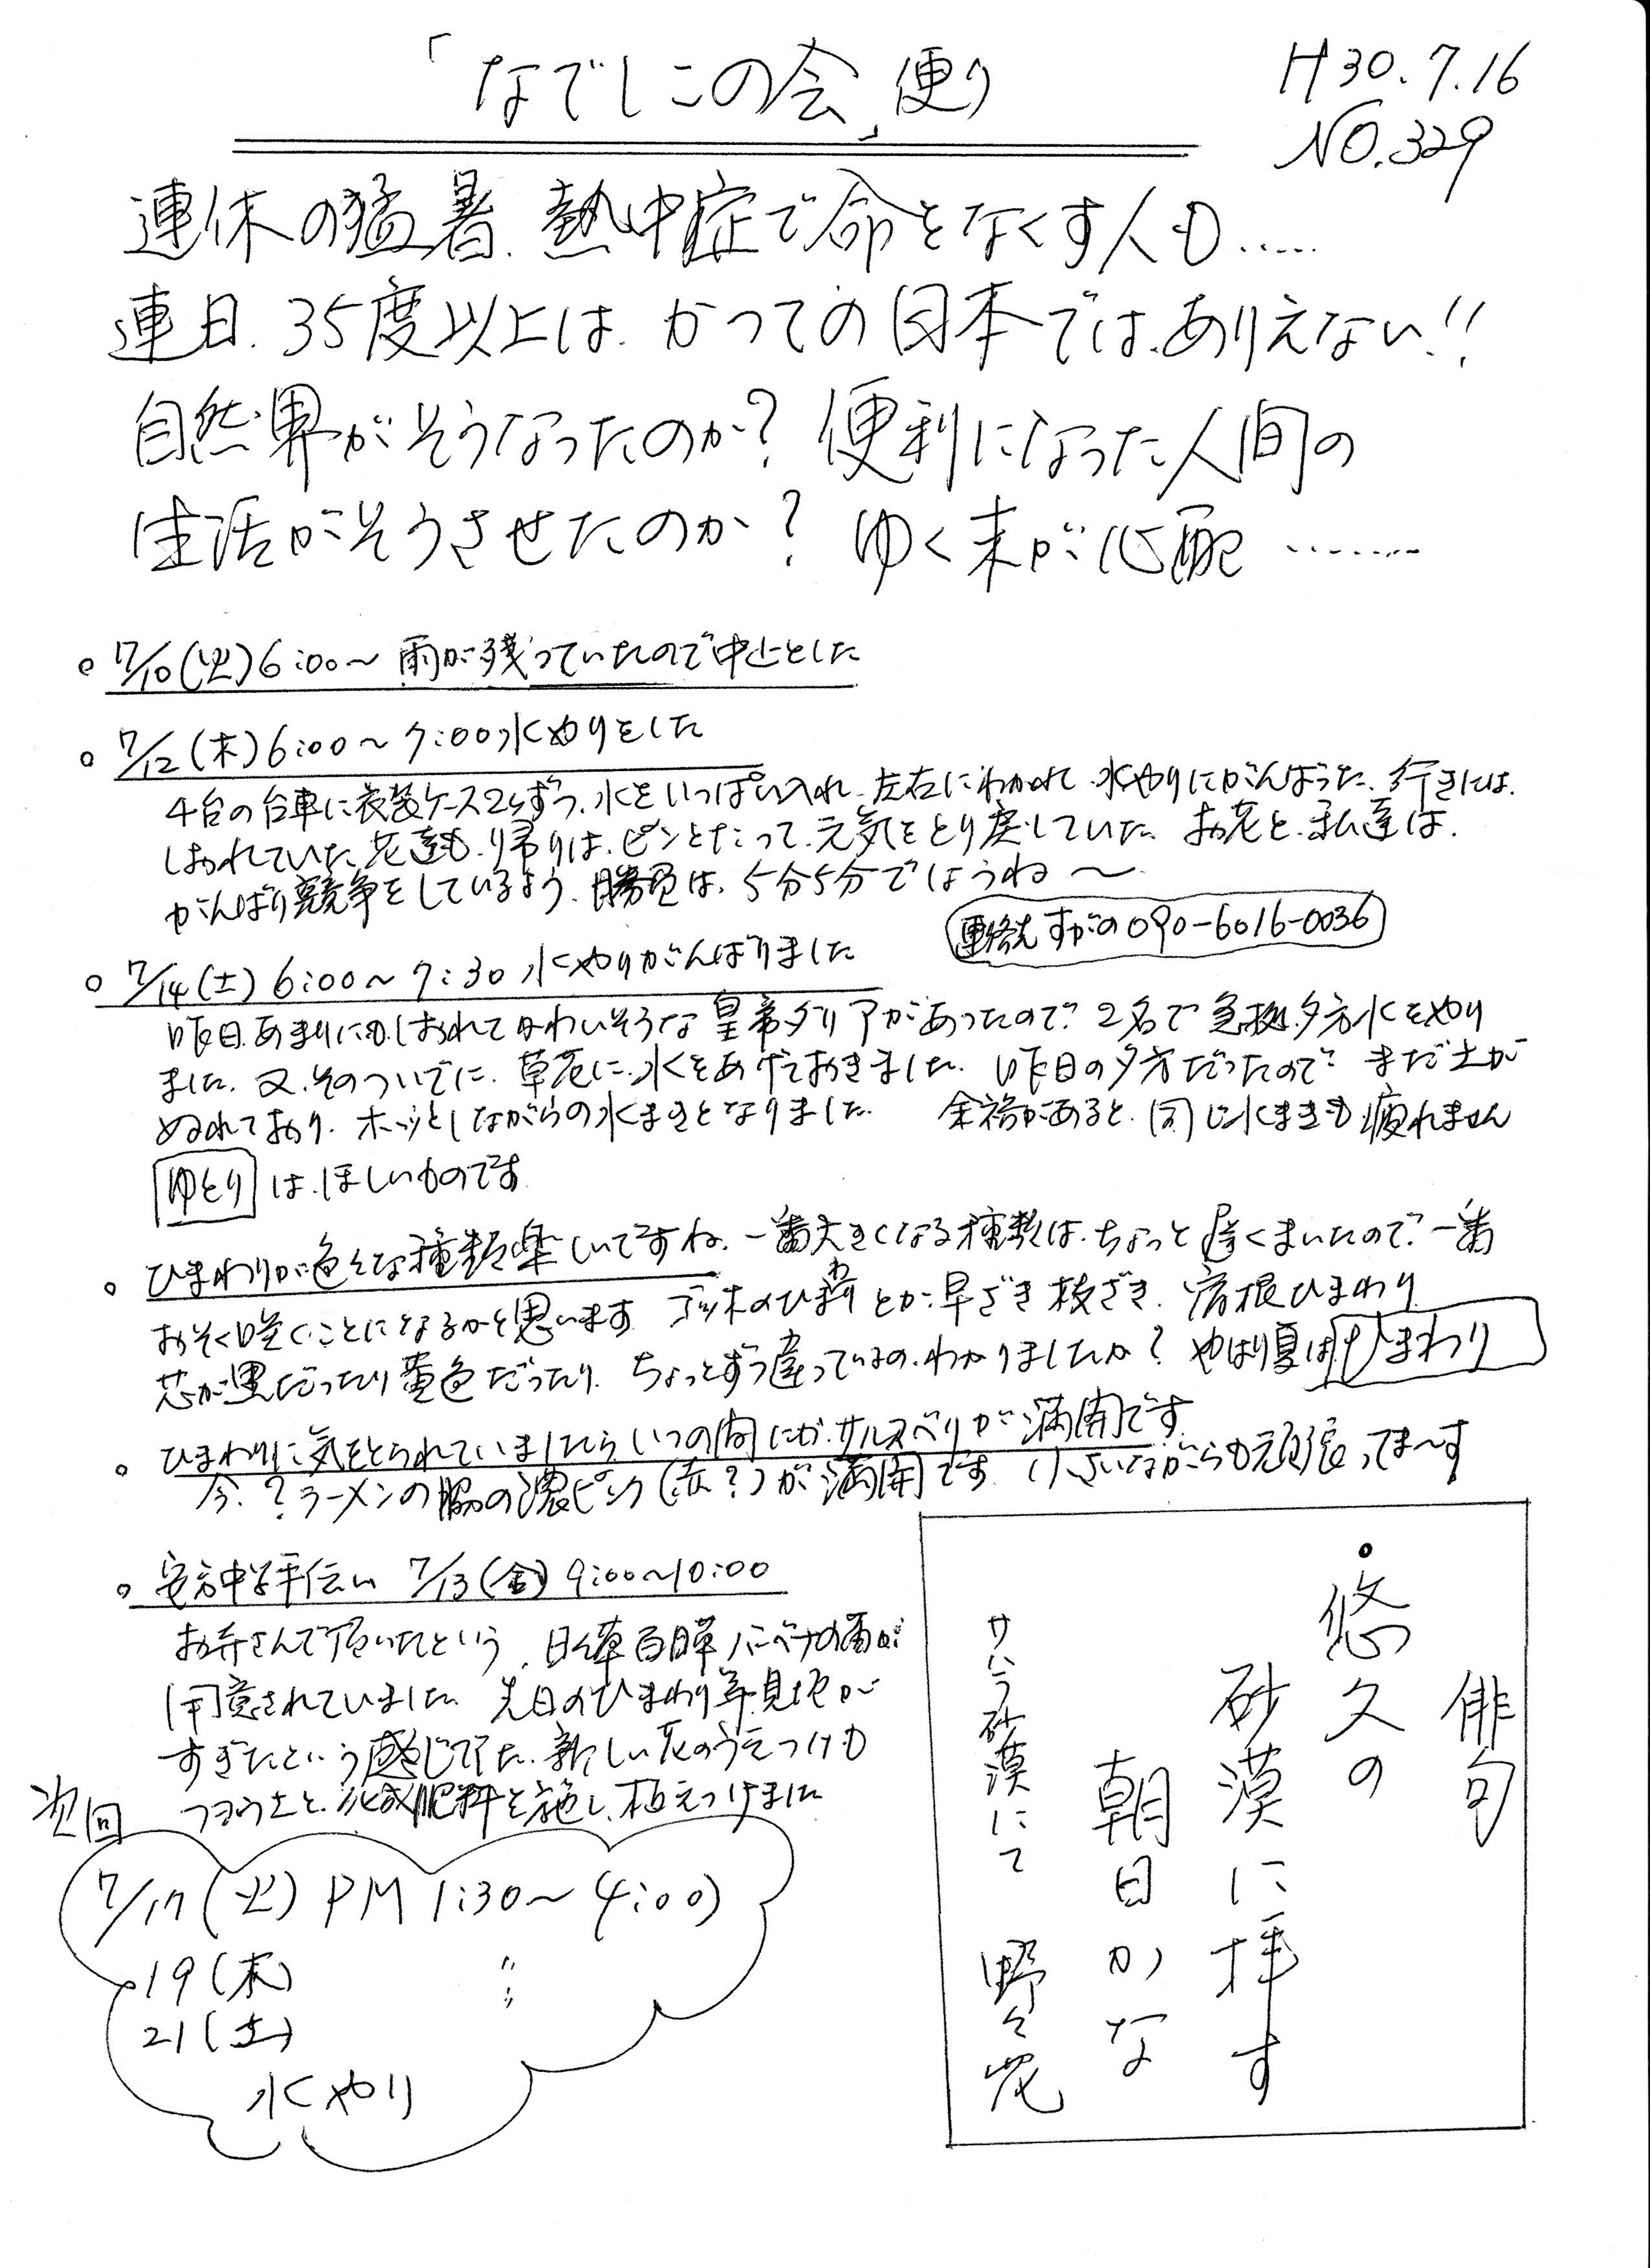 「なでしこの会」便り
H30.7.16
NO.329
連休の猛暑、熱中症で命をなくす人も……
連日、35度以上は、かつての日本では、ありえない!!
自然界がそうなったのか? 便利になった人間の
生活がそうさせたのか? ゆく末が心配………
○ 7/10(火)6:00〜 雨が残っていたので中止とした
○ 7/12(木)6:00〜7:00 水やりをした
4台の台車に衣装ケース2ヶずつ、水をいっぱい入れ、左右にわかれ、水やりにがんばった、行きには、
しおれていた花達も、帰りは、ピンとたって、元気をとり戻していた お花と、私達は、
がんばり競争をしているよう、勝負は、5分5分でしょうね〜
連絡先 すがの 090-6016-0036
○ 7/14(土)6:00〜7:30 水やりがんばりました
昨日、あまりにも、しおれてかわいそうな皇帝ダリアがあったので、2名で急拠、夕方水をやり
ました、又、そのついでに、草花に、水をあげておきました、昨日の夕方だったので、まだ土が
ぬれており、ホッとしながらの水まきとなりました 余裕があると、同じ水まきも疲れません
ゆとりは、ほしいものです
○ ひまわりが色々な種類楽しいですね、一番大きくなる種類は、ちょっと遅くまいたので、一番
おそく咲くことになるかと思います ゴッホのひまわりとか、早ざき 枝ざき、宿根ひまわり
芯が黒だったり黄色だったり、ちょっとずつ違っているの、わかりましたか? やはり夏はひまわり
○ ひまわりに気をとられていましたら、いつの間にか、サルスベリが満開です
今、?ラーメンの脇の濃ピンク(赤?)が満開です 小さいながらも頑張ってま〜す
○ 安方中学手伝い 7/13(金)9:00〜10:00
お弁さんで頂いたという、日々草 百日草 バーベナの苗が
用意されていました 先日のひまわり 見せ が
すぎたという感じでした、新しい花のうえつけも
フヨウ土と、化成肥料を施し、植えつけました
次回
7/17(火) PM 1:30〜4:00)
19(木) 〃
21(土) 〃
水やり
俳句
・悠久の
砂漠に拝す
朝日かな
サハラ砂漠にて 野々花